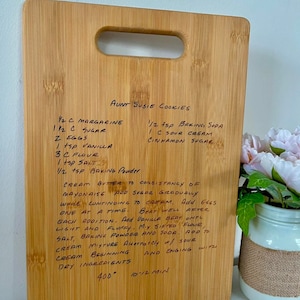 Aunt Susie Cookies
1/2 C Margarine
1 1/2 C Sugar
2 Eggs
1 tsp Vanilla
3 C Flour
1 tsp Salt
1/2 tsp Baking Powder
1/2 tsp Baking Soda
1 C Sour Cream
Cinnamon Sugar
Cream butter to consistancy of
mayonaise. Add sugar gradually
while continuing to cream. Add eggs
one at a time. Beat well after
each addition. Add vanilla. Beat until
light and fluffy. My sister
salt baking powder and soda. Add to
cream mixture alternately with sour
cream beginning and ending with
dry ingredients
400° 10-12 min